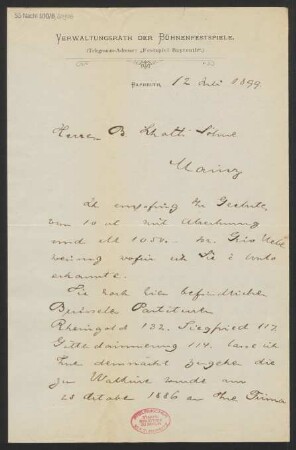 55 Nachl 100/B,
VERWALTUNGSRATH DER BÜHNENFESTSPIELE.
(Telegramm-Adresse: „Festspiel Bayreuth“.)
BAYREUTH, 12 Juli 1899.
Herren B Schott Söhne
Mainz
Ich empfing Ihr Geehrtes
vom 10 ct mit Abrechnung
und M 1050.-
wofür ich Sie
erkannte.
Die noch hier befindlichen
Partituren
Rheingold 132. Siegfried 117
Götterdämmerung 114. lasse ich
Ihnen demnächst zugehen die
zur Walküre wurde am
23 October 1886 an Ihre Firma